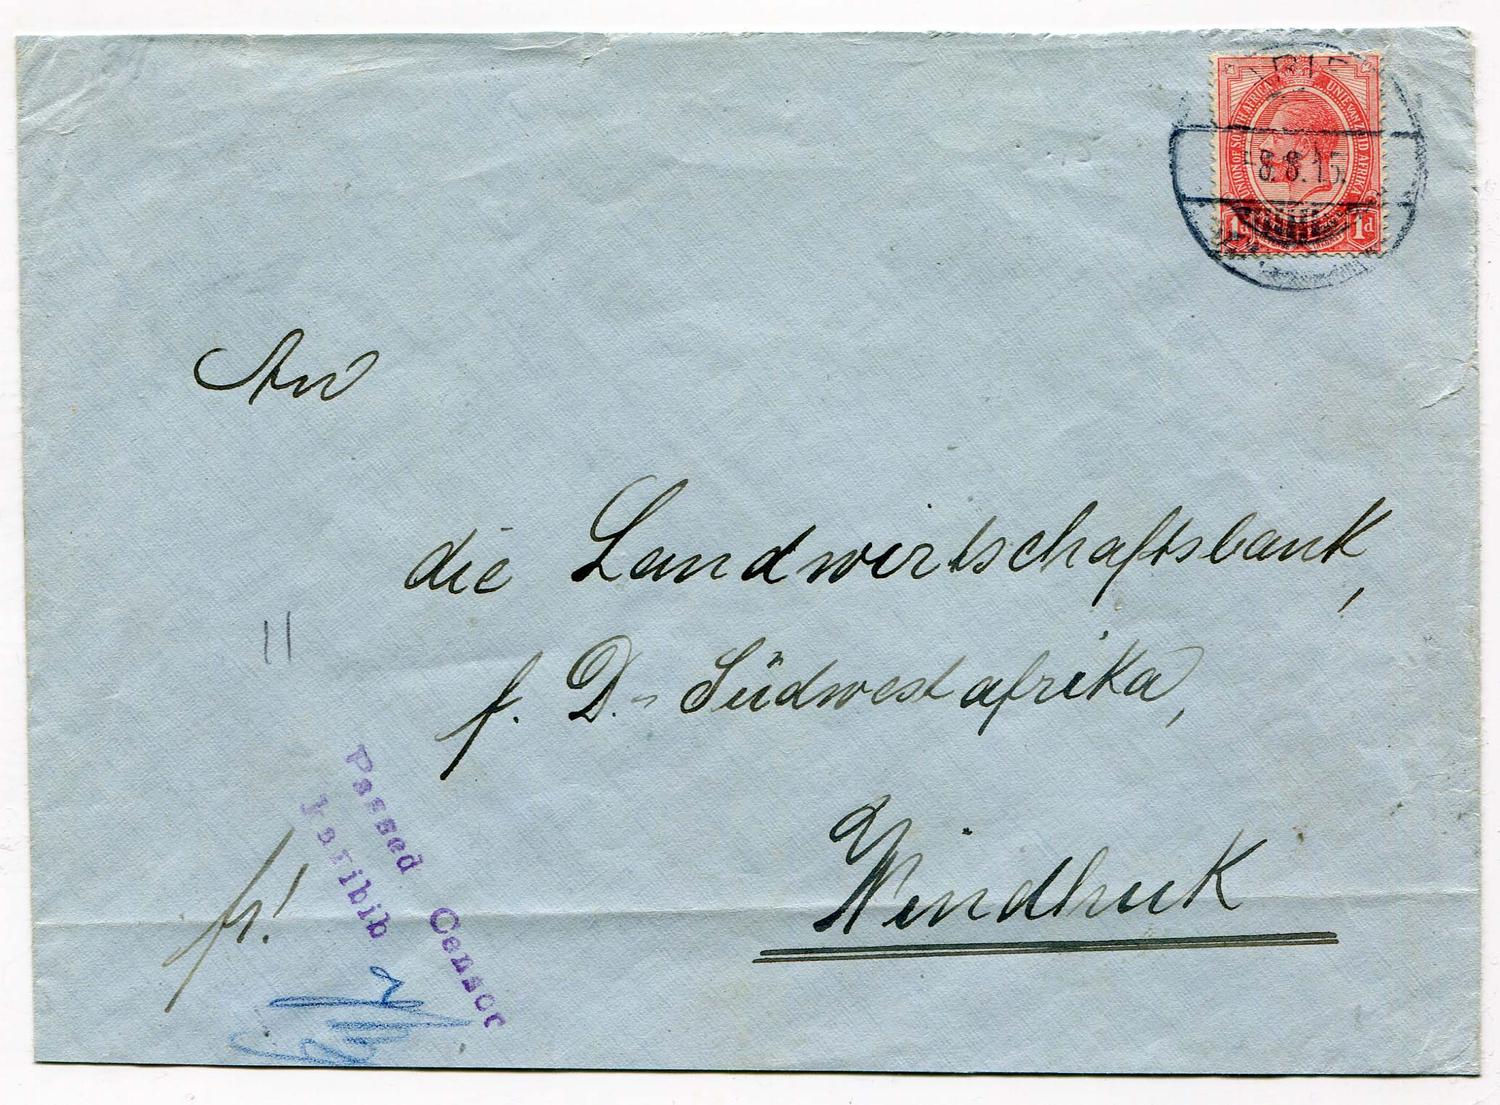 UNION OF SOUTH AFRICA UNIE VAN ZUID AFRIKA
8.8.15.
1d 1d
An
die Landwirtschaftsbank,
f. D.- Südwestafrika,
Windhuk
fr!
Passed Censor
Karibib